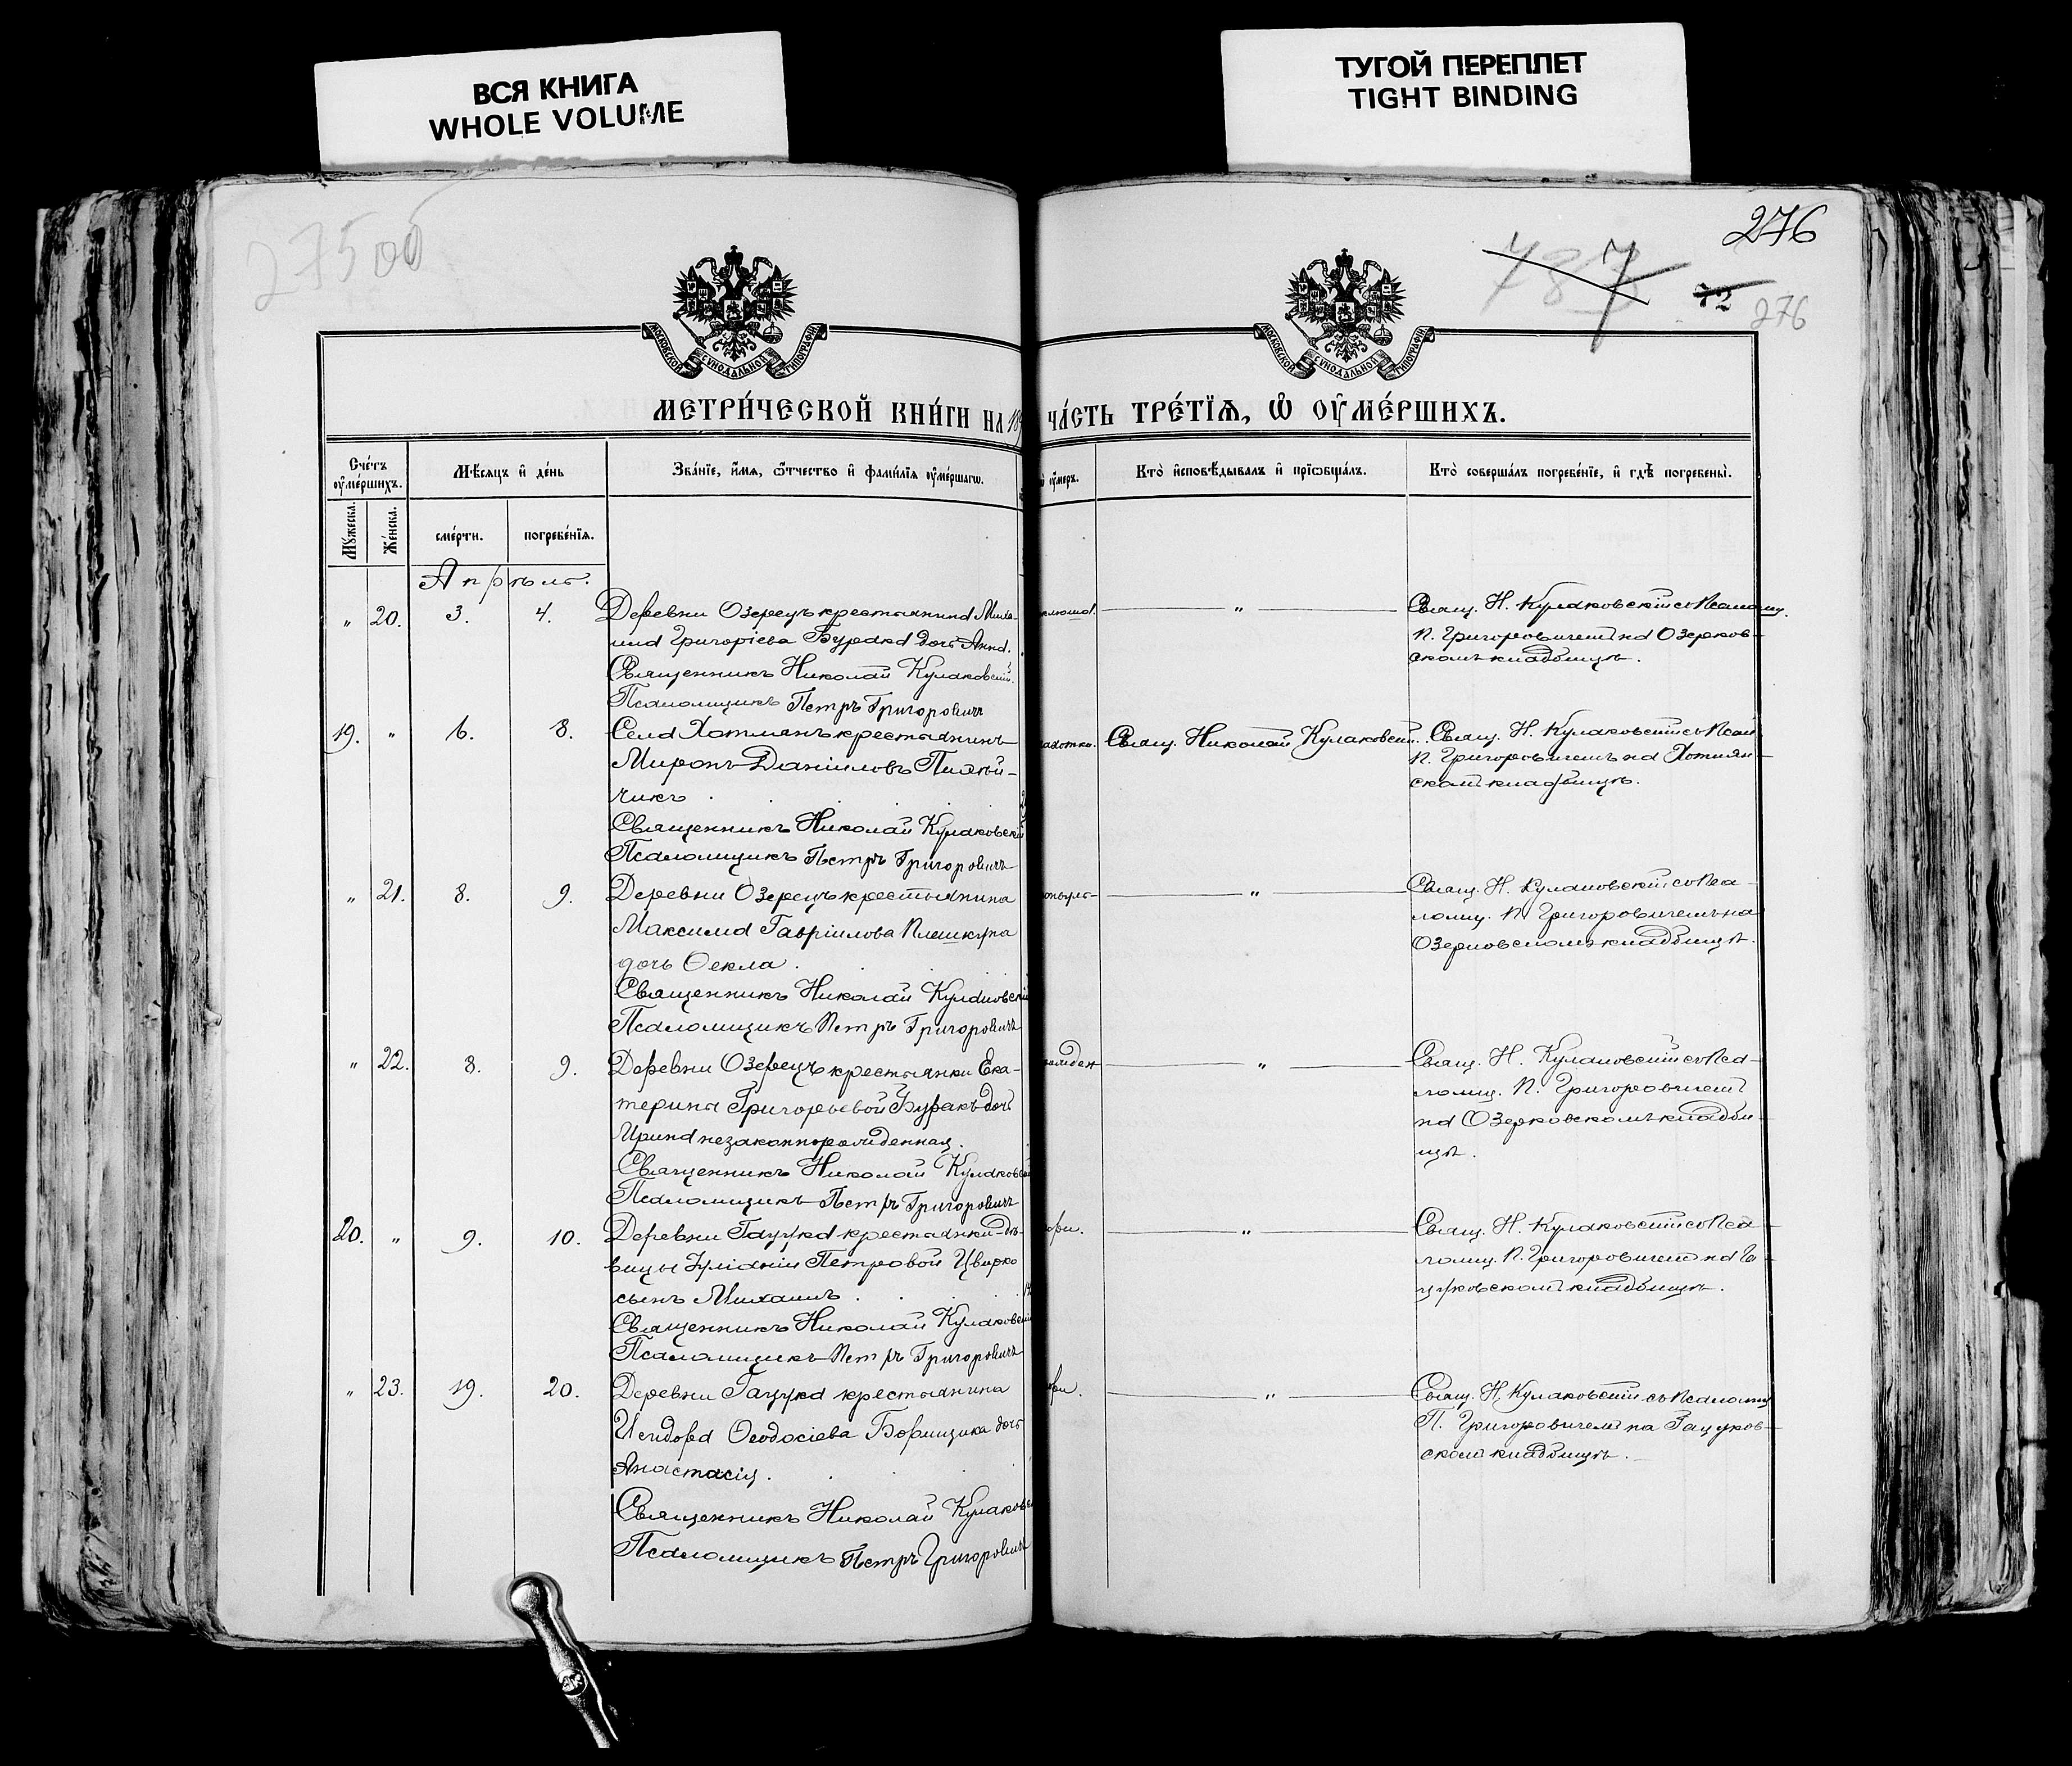 ВСЯ КНИГА
WHOLE VOLUME
ТУГОЙ ПЕРЕПЛЕТ
TIGHT BINDING
275об
276
787
72
276
МОСКОВСКОЙ СѴНОДАЛЬНОЙ ТИПОГРАФІИ
МОСКОВСКОЙ СѴНОДАЛЬНОЙ ТИПОГРАФІИ
МЕТРИ́ЧЕСКОЙ КНИ́ГИ НА 18
ЧА́СТЬ ТРЕ́ТЇѦ, Ѡ҆ ОУ҆МЕ́РШИХЪ.
Сче́тъ оу҆ме́ршихъ.
Мѣ́сѧцъ и҆ де́нь
Зва́нїе, и҆́мѧ, ѻ҆́тчество и҆ фами́лїѧ оу҆ме́ршагѡ.
оу҆́меръ.
Кто̀ и҆сповѣ́дывалъ и҆ прїѡбща́лъ.
Кто̀ соверша́лъ погребе́нїе, и҆ гдѣ̀ погребены̀.
Мꙋ́жеска.
Же́нска.
сме́рти.
погребе́нїѧ.
Апрѣль.
" 20. 3. 4. Деревни Озерецъ крестьянина
Григорієва Бурака дочь Анна.
Священникъ Николай Кулаковскій.
Псаломщикъ Петръ Григоровичъ
— " — Свящ. Н. Кулаковскій съ Псаломщ.
П. Григоровичемъ на Озерков-
скомъ кладбищѣ.
19. " 6. 8. Села Хотлянъ крестьянинъ
Миронъ Даніиловъ
чикъ
Священникъ Николай Кулаковскій
Псаломщикъ Петръ Григоровичъ
чахотки. Свящ. Николай Кулаковскій. Свящ. Н. Кулаковскій съ Псал
П. Григоровичемъ на Хотлян-
скомъ кладбищѣ.
" 21. 8. 9. Деревни Озерецъ крестьянина
Максима Гавріилова Плешкуна
дочь Ѳекла.
Священникъ Николай Кулаковскій
Псаломщикъ Петръ Григоровичъ
— " — Свящ. Н. Кулаковскій съ Пса-
ломщ. П. Григоровичемъ на
Озерковскомъ кладбищѣ.
" 22. 8. 9. Деревни Озерецъ крестьянки Ека-
терины Григорьевой Буракъ дочь
Ирина незаконнорожденная.
Священникъ Николай Кулаковскій
Псаломщикъ Петръ Григоровичъ
— " — Свящ. Н. Кулаковскій съ Пса-
ломщ. П. Григоровичемъ
на Озерковскомъ кладби-
щѣ.
20. " 9. 10. Деревни Гацука крестьянки-дѣ-
вицы Іуліаніи Петровой Цвирко
сынъ Михаилъ.
Священникъ Николай Кулаковскій
Псаломщикъ Петръ Григоровичъ
кори. — " — Свящ. Н. Кулаковскій съ Пса-
ломщ. П. Григоровичемъ на Га-
цуковскомъ кладбищѣ.
" 23. 19. 20. Деревни Гацука крестьянина
Исидора Ѳеодосіева Борищика дочь
Анастасія.
Священникъ Николай Кулаковск
Псаломщикъ Петръ Григоровичъ
кори. — " — Свящ. Н. Кулаковскій съ Псаломщ
П. Григоровичемъ на Гацуков-
скомъ кладбищѣ.